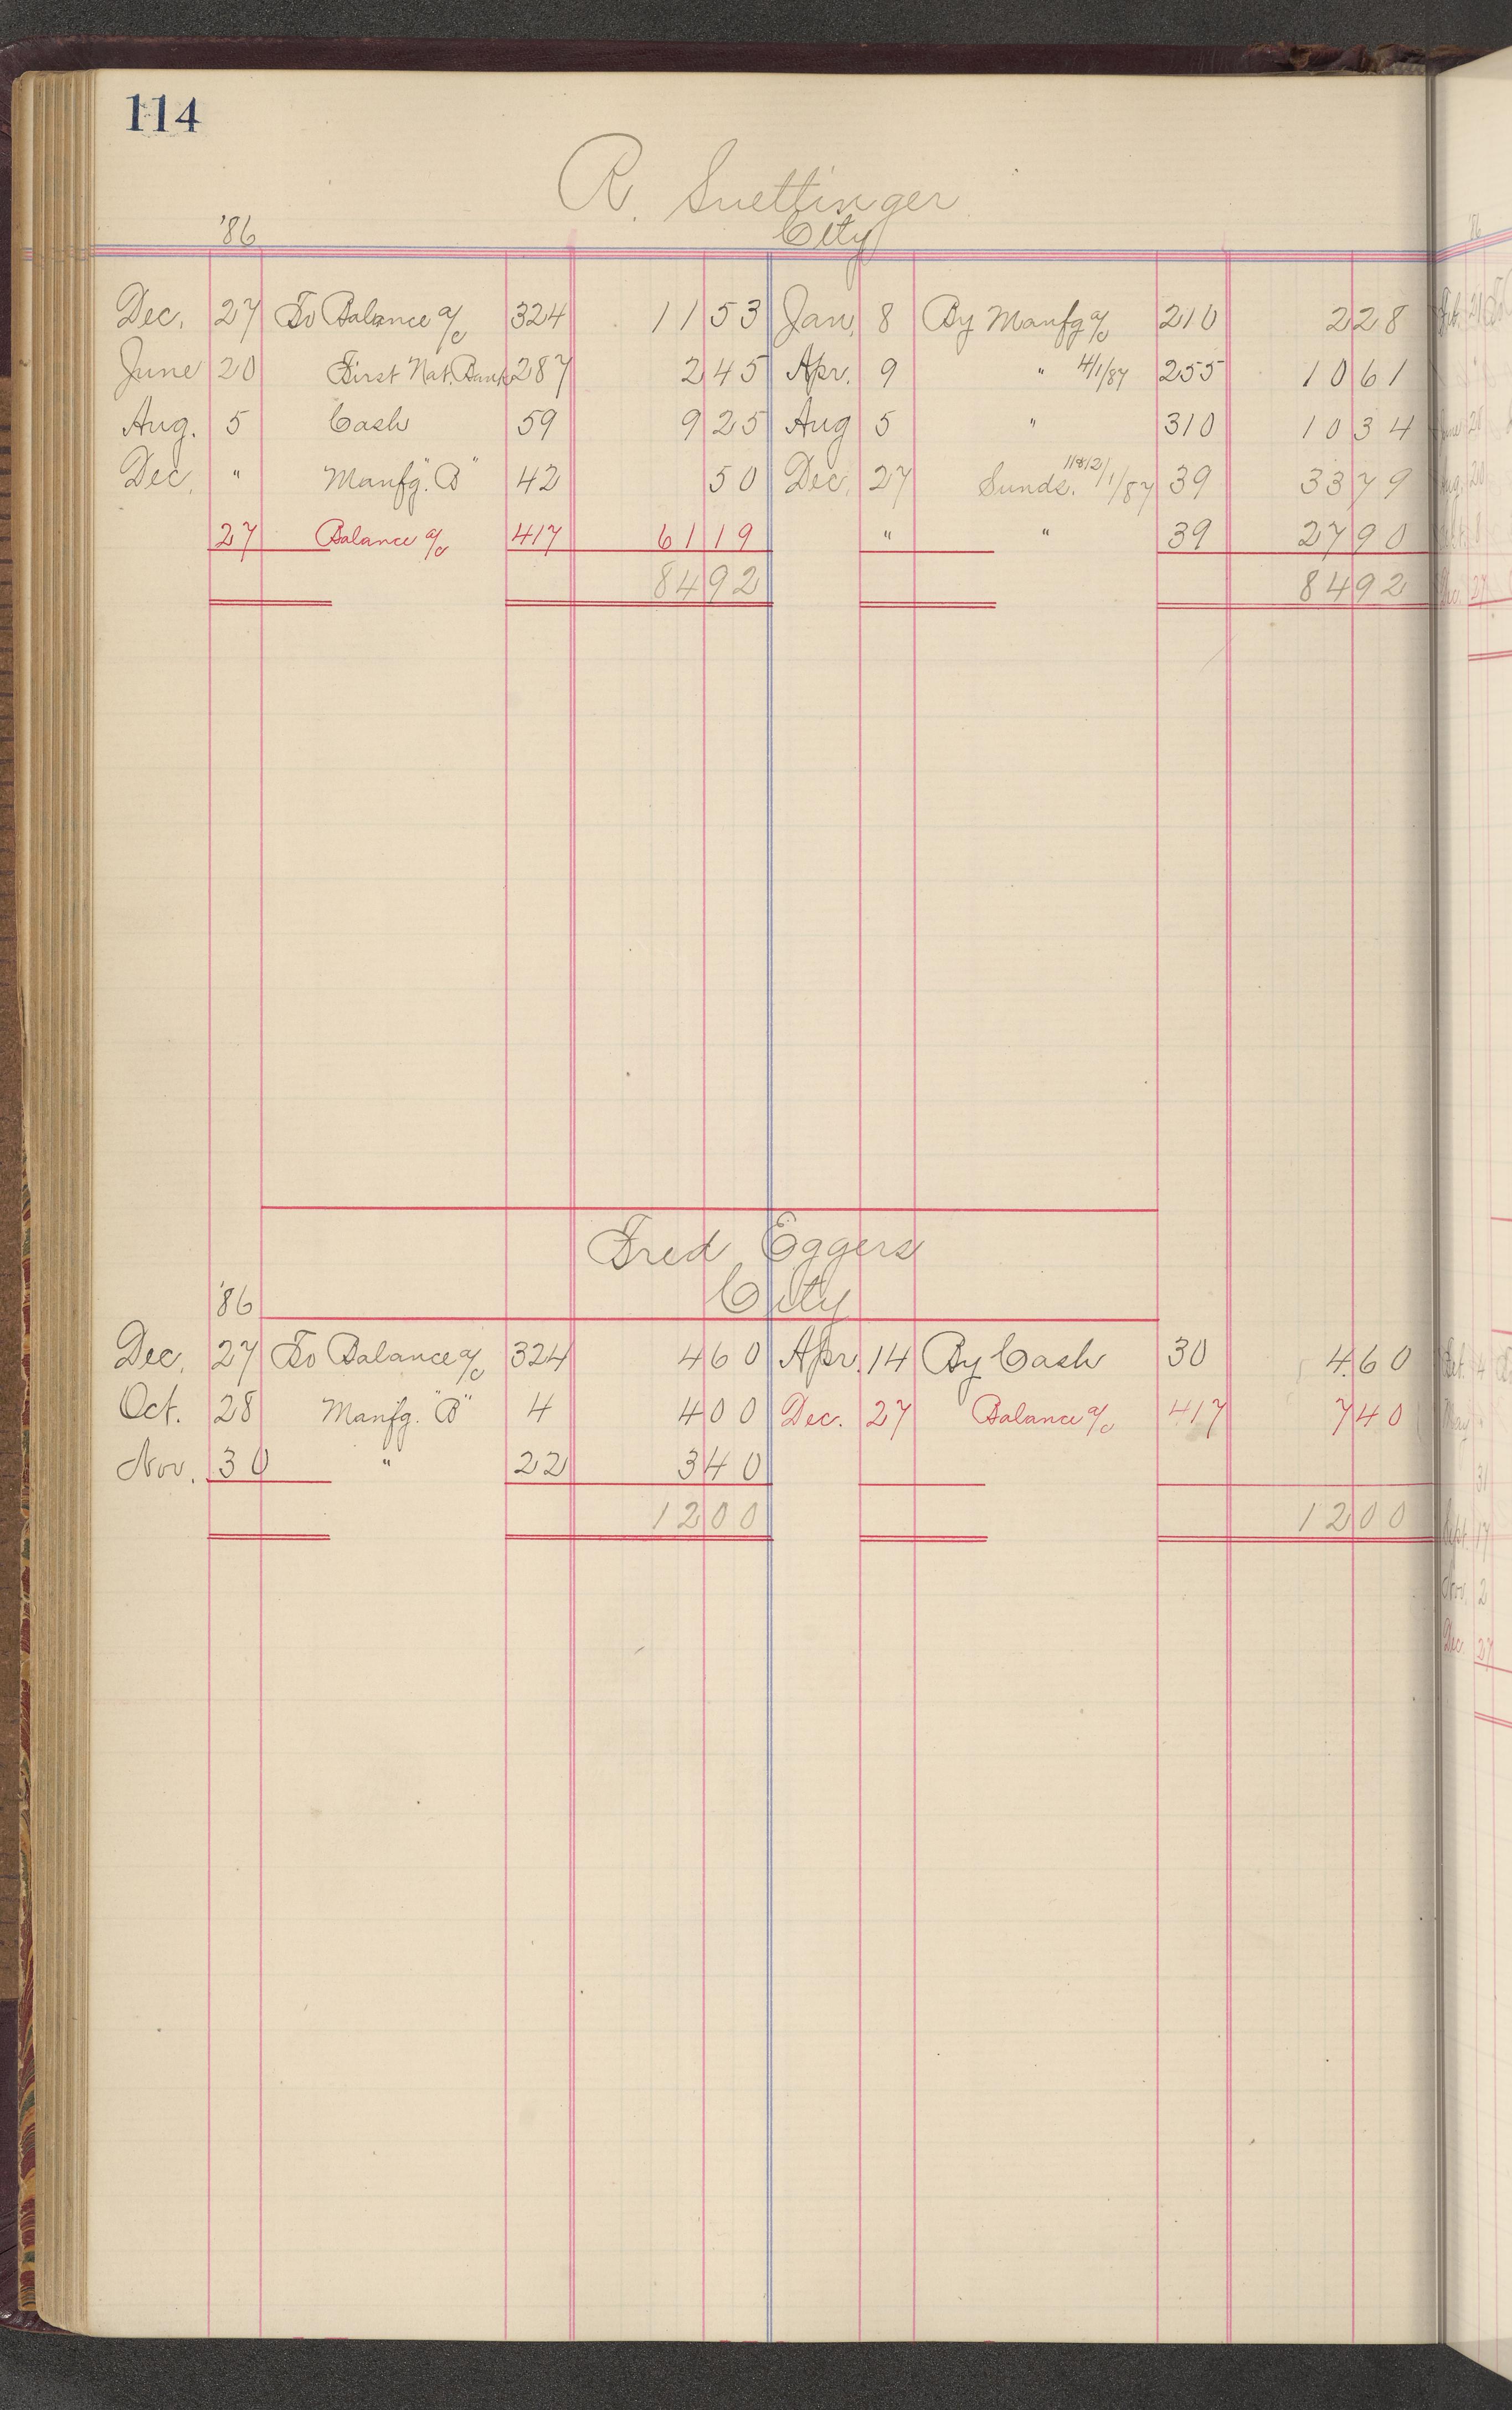 114
R. Suettinger
City
'86
Dec. 27 To Balance a/c 324 11 53 Jan. 8 By Manfg a/c 210 2 28
June 20 First Nat. Bank 287 2 45 Apr. 9 " 4/1/87 255 10 61
Aug. 5 Cash 59 9 25 Aug 5 " 310 10 34
Dec. " Manfg. "B" 42 50 Dec. 27 Sunds. 1/1/87 39 33 79
27 Balance a/c 417 61 19 " " 39 27 90
84 92 84 92
Fred Eggers
City
'86
Dec. 27 To Balance a/c 324 4 60 Apr. 14 By Cash 30 4.60
Oct. 28 Manfg. "B" 4 4 00 Dec. 27 Balance a/c 417 7 40
Nov. 30 " 22 3 40
12 00 12 00